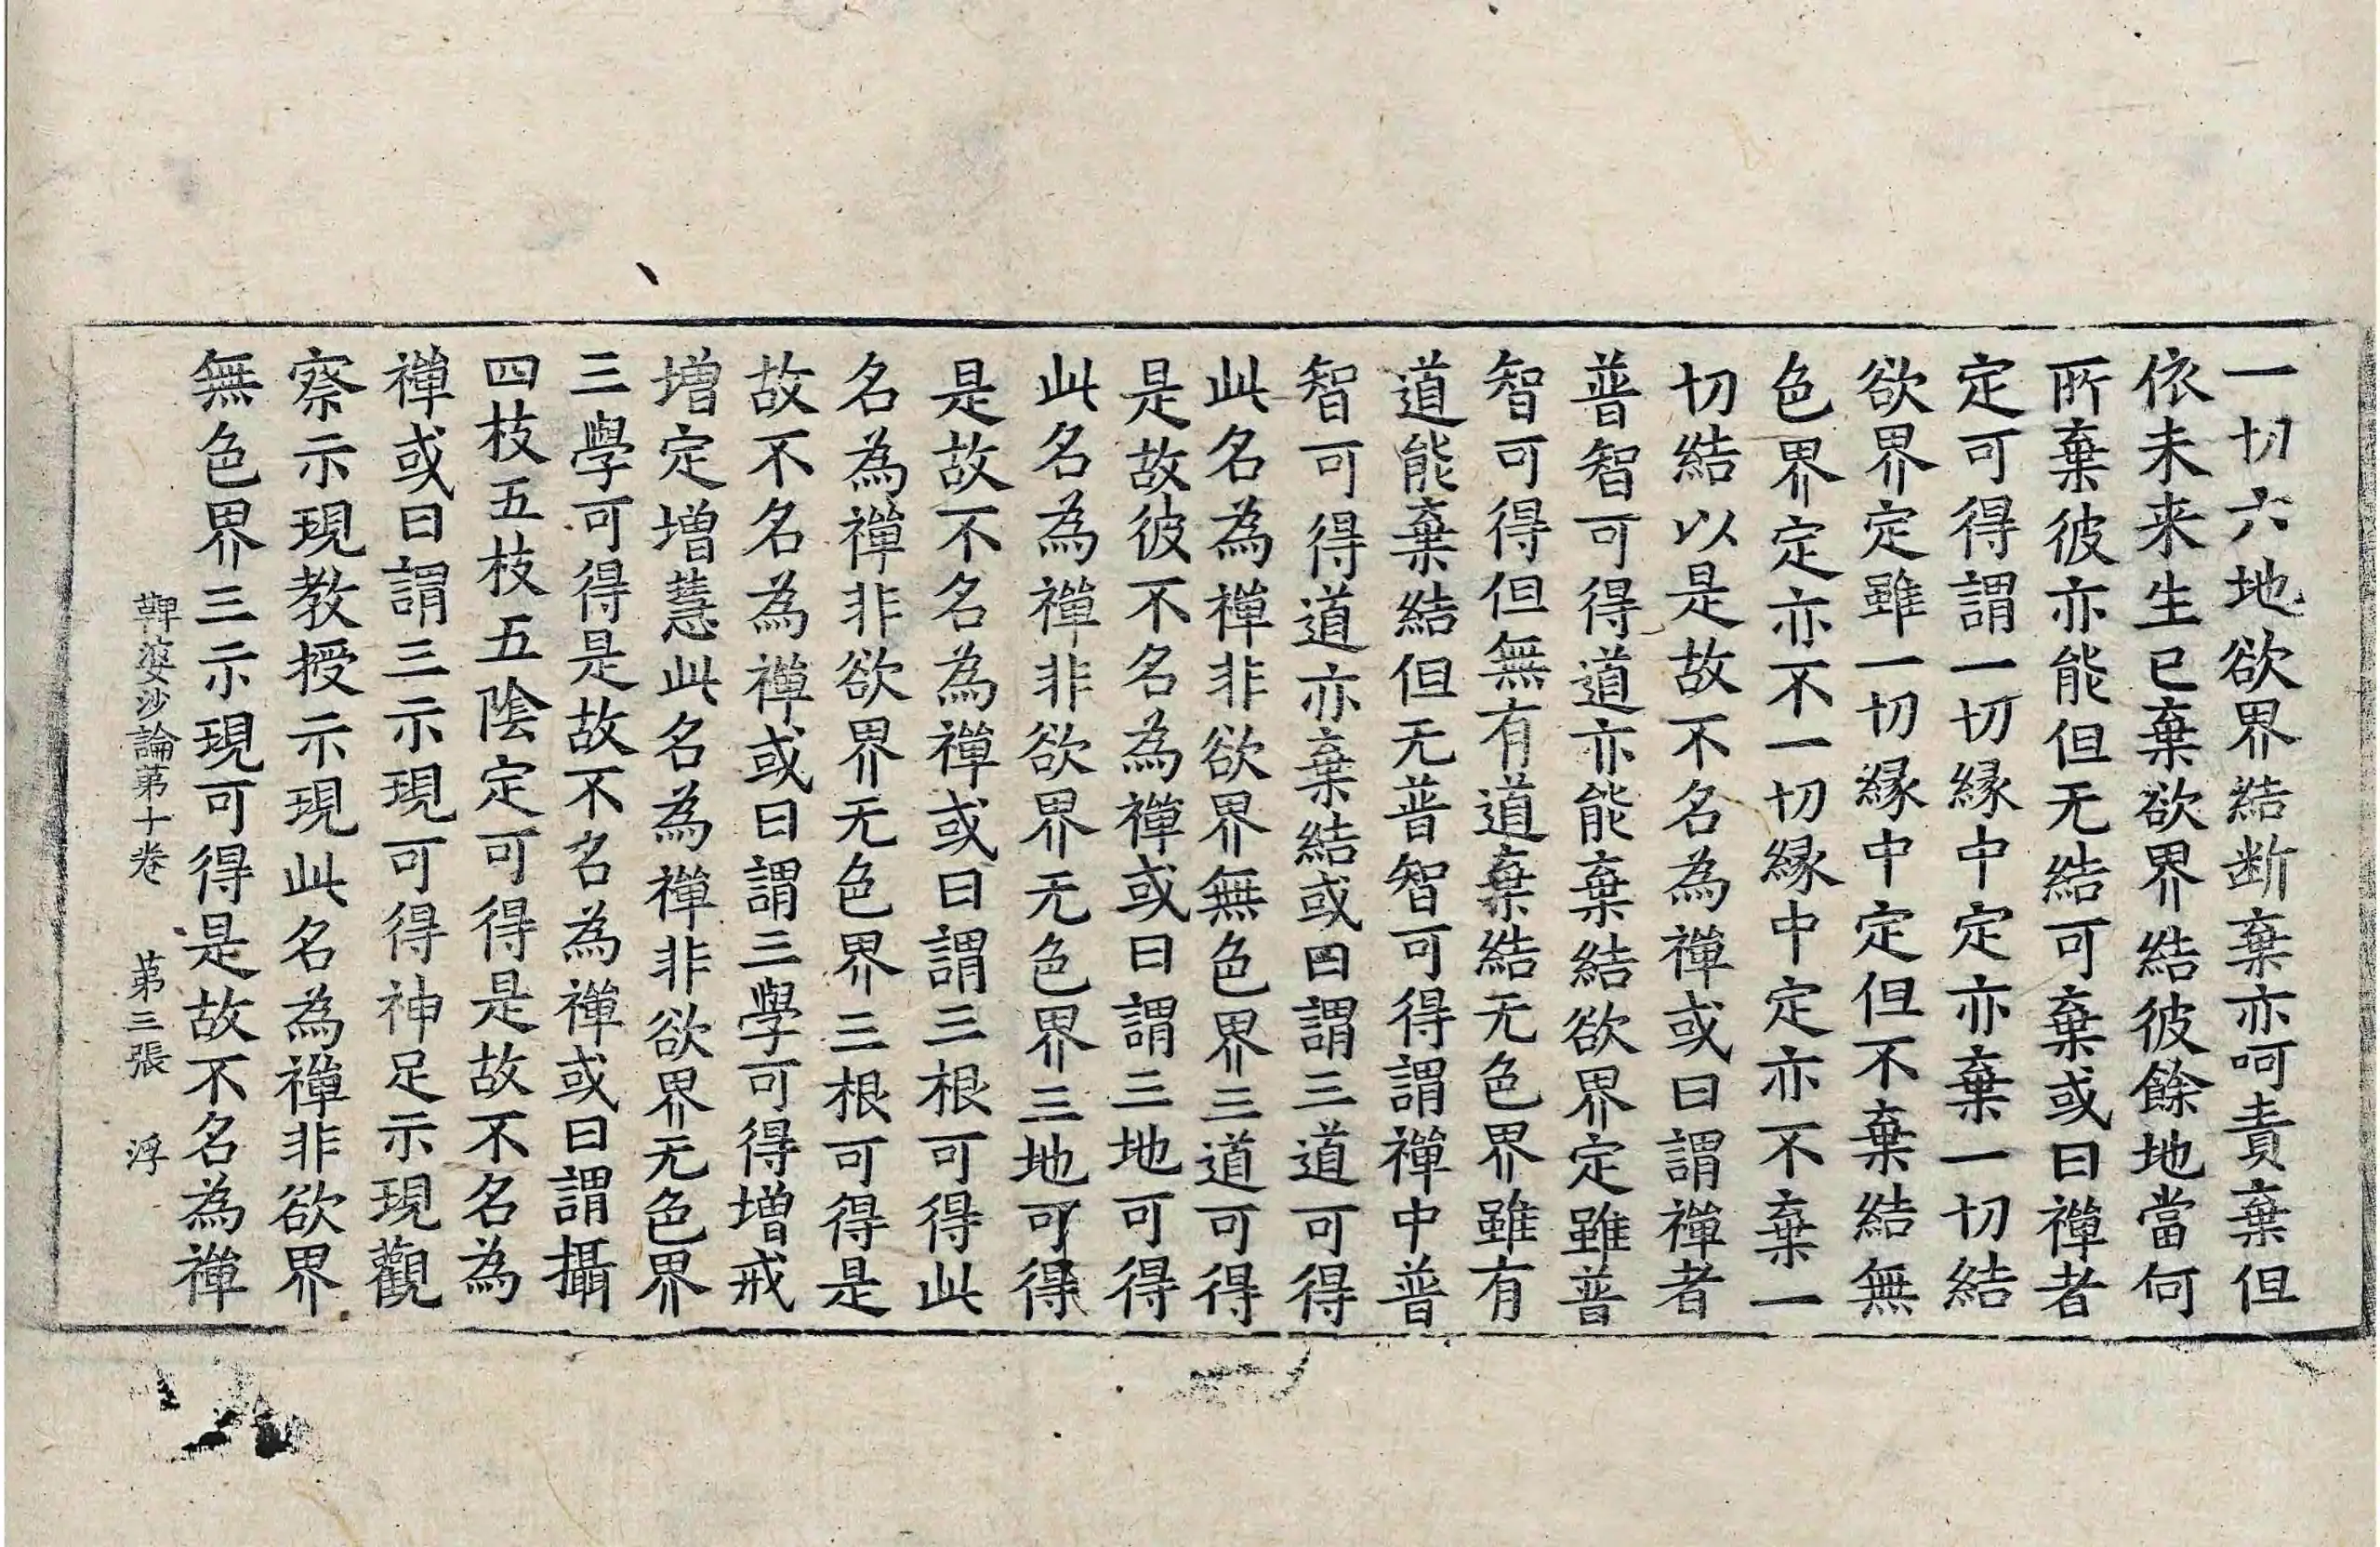 一切六地欲界結断棄亦呵責棄但
依未来生已棄欲界結彼餘地當何
所棄彼亦能但无結可棄或曰禪者
定可得謂一切縁中定亦棄一切結
欲界定雖一切縁中定但不棄結無
色界定亦不一切縁中定亦不棄一
切結以是故不名為禪或曰謂禪者
普智可得道亦能棄結欲界定雖普
智可得但無有道棄結无色界雖有
道能棄結但无普智可得謂禪中普
智可得道亦棄結或曰謂三道可得
此名為禪非欲界無色界三道可得
是故彼不名為禪或曰謂三地可得
此名為禪非欲界无色界三地可得
是故不名為禪或曰謂三根可得此
名為禪非欲界无色界三根可得是
故不名為禪或曰謂三學可得增戒
增定增慧此名為禪非欲界无色界
三學可得是故不名為禪或曰謂攝
四枝五枝五陰定可得是故不名為
禪或曰謂三示現可得神足示現觀
察示現教授示現此名為禪非欲界
無色界三示現可得是故不名為禪
鞞婆沙論第十卷 第三張 浮